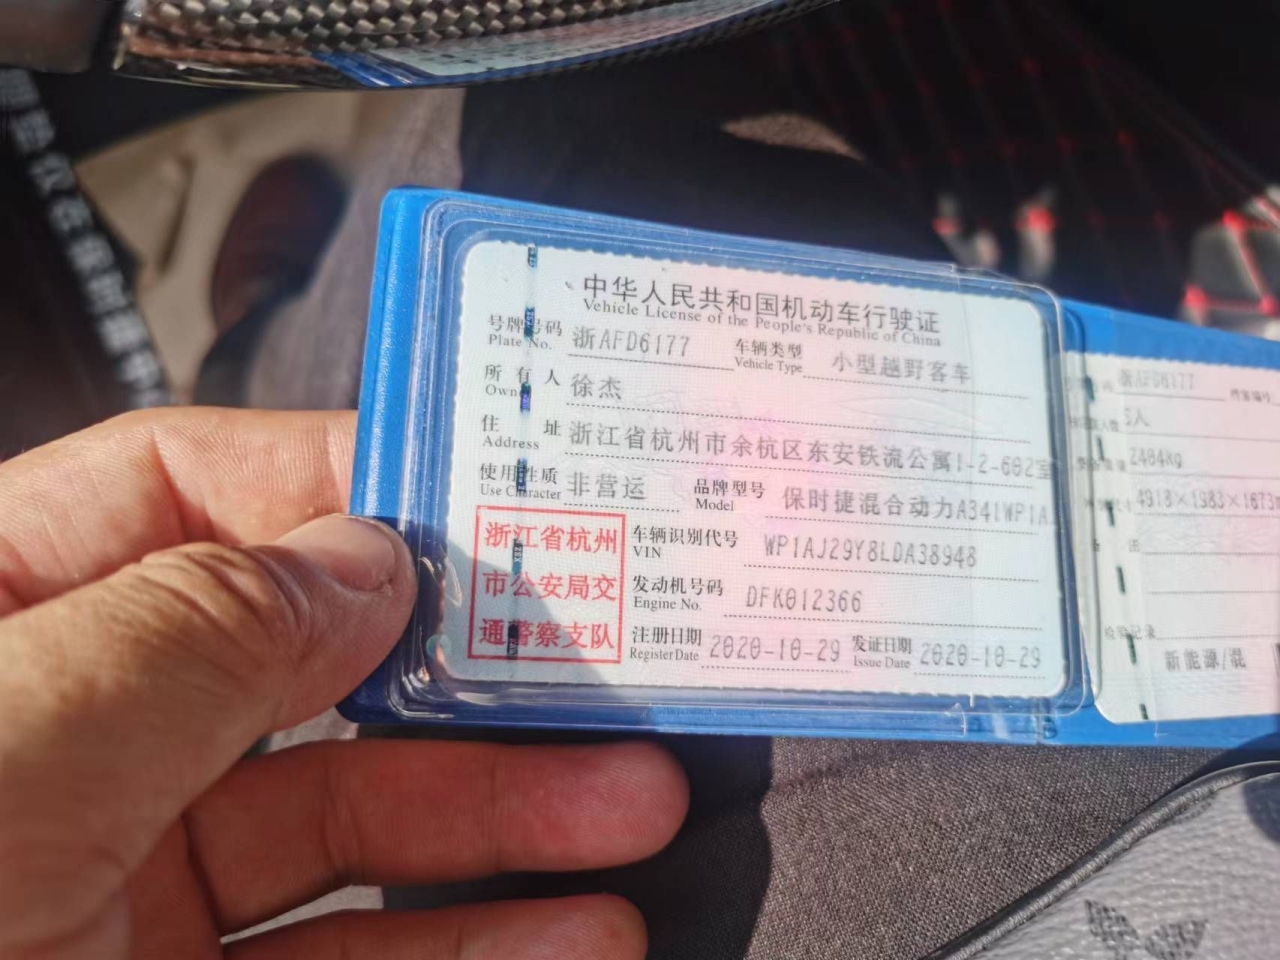 中华人民共和国机动车行驶证
Vehicle License of the People's Republic of China
号牌号码 浙AFD6177 车辆类型 小型越野客车
Plate No. Vehicle Type
所有人 徐杰
Owner
住址 浙江省杭州市余杭区东安铁流公寓1-2-602室
Address
使用性质 非营运 品牌型号 保时捷混合动力A341WP1A
Use Character Model
浙江省杭州
市公安局交
通警察支队
车辆识别代号 WP1AJ29Y8LDA38948
VIN
发动机号码 DFK012366
Engine No.
注册日期 2020-10-29 发证日期 2020-10-29
Register Date Issue Date
浙AFD6177 档案编号
5人
2404kg
4918×1983×1673
检验记录
新能源/混